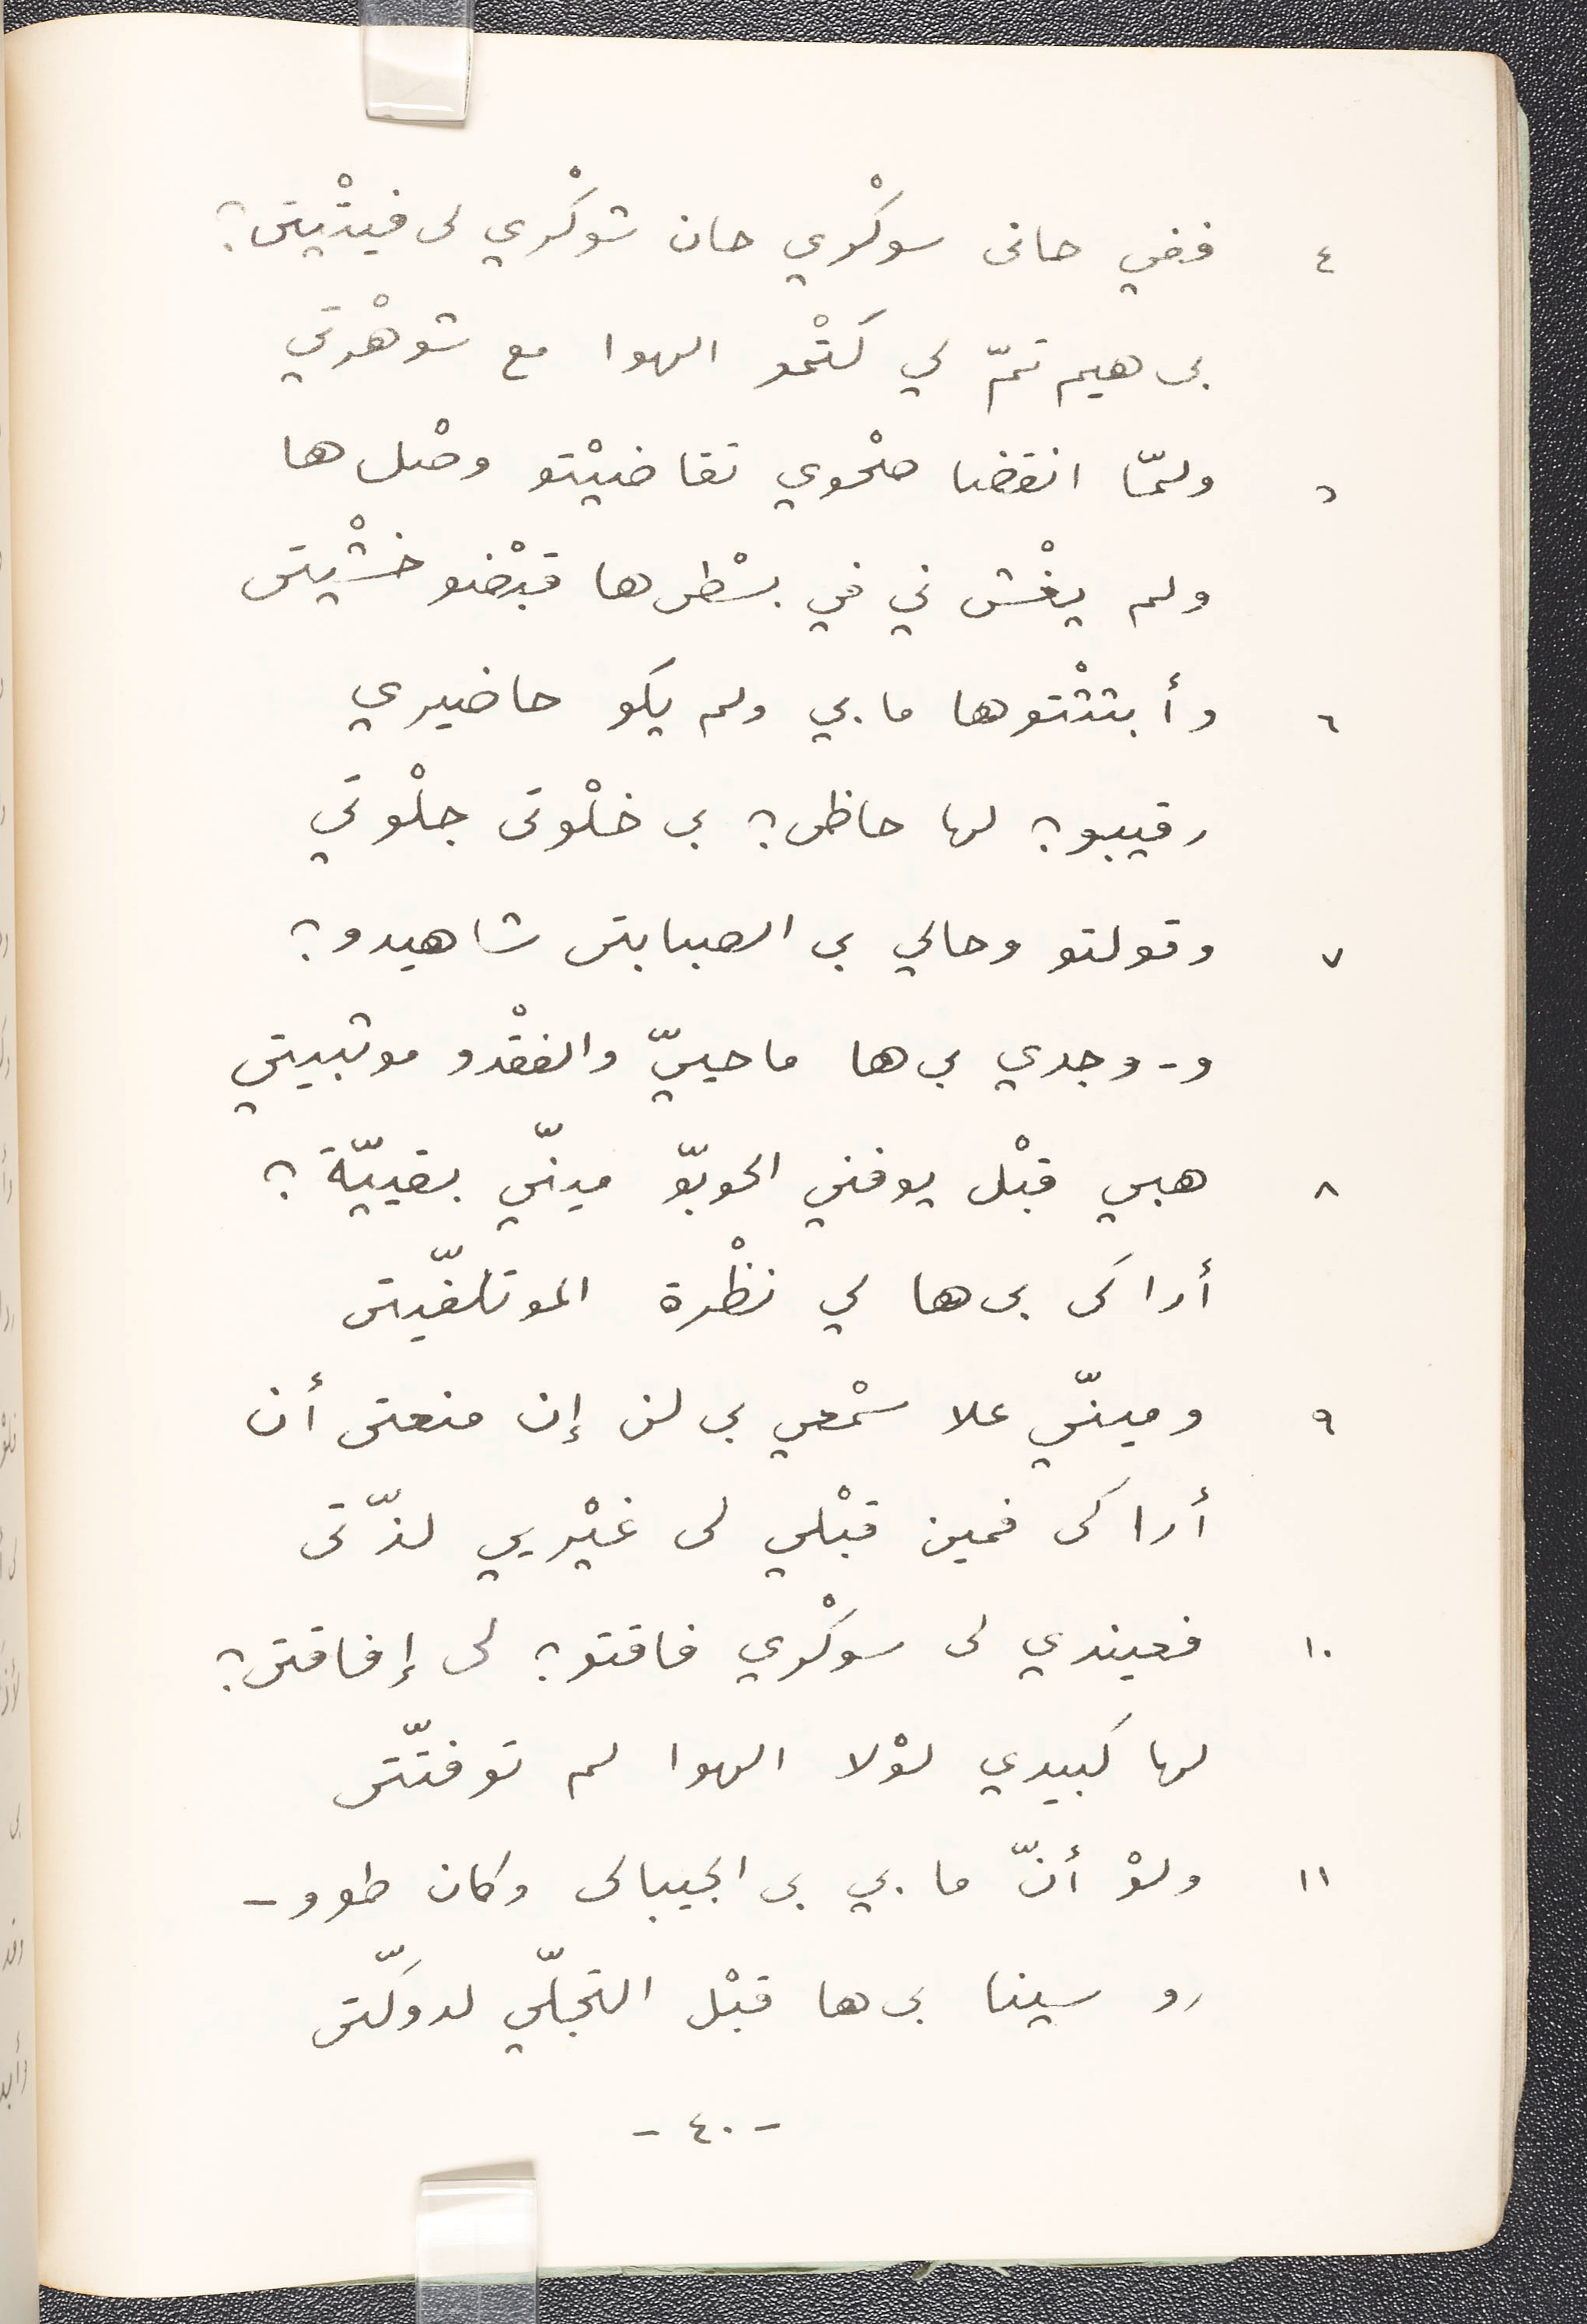 ٤ ففي حانى سوكْري حان شوكْري لى فيتْيتى؟
بى هيم تمّ لي كتْمو الهوا مع شوهْرتي
٥ ولمّا انقضا صحْوي تقاضيْتو وصْل ها
ولم يغْش ني في بسْطى ها قبْضو خشْيتى
٦ وأبتثْتوها ما بي ولم يكو حاضيري
رقيبو؟ لها حاظى؟ بى خلْوتى جلْوتي
٧ وقولتو وحالي بى الصبابتى شاهيدو؟
و- وجدي بى ها ماحييّ والفقْدو موثبيتي
٨ هبي قبْل يوفني الحوبّو مينّي بقييّة؟
أراكى بى ها لي نظْرة الموتلفّيتى
٩ ومينّي علا سمْعي بى لن إن منعتى أن
أراكى فمين قبْلي لى غيْريي لذّتى
١٠ فعيندي لى سوكْري فاقتو؟ لى إفاقتى؟
لها كبيدي لوْلا الهوا لم توفتّتى
١١ ولوْ أنّ ما بي بى الجيبالى وكان طوو-
رو سينا بى ها قبْل التجلّي لدوكّتى
- ٤٠ -